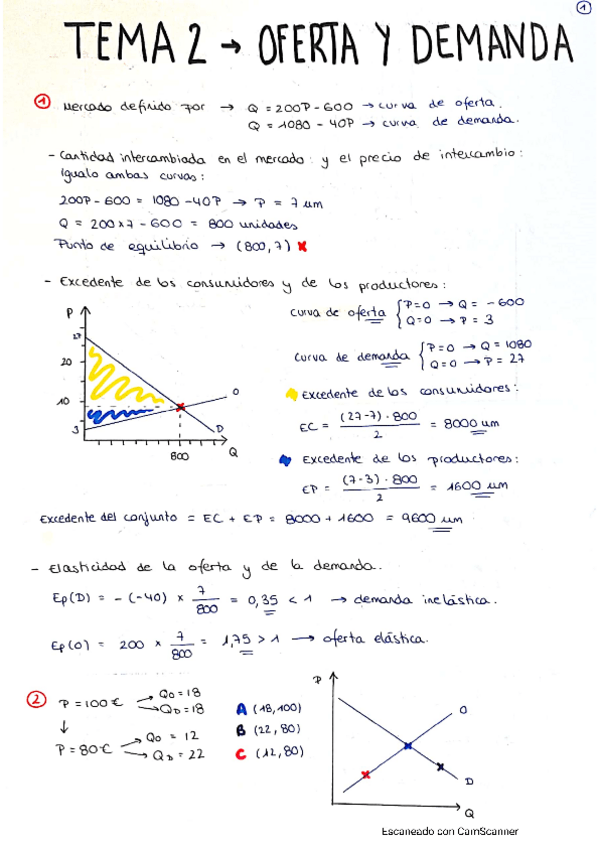 1
TEMA 2 → OFERTA Y DEMANDA
1 Mercado definido por → Q = 200P - 600 → curva de oferta.
Q = 1080 - 40P → curva de demanda.
- Cantidad intercambiada en el mercado y el precio de intercambio:
Igualo ambas curvas:
200P - 600 = 1080 - 40P → P = 7 um
Q = 200 x 7 - 600 = 800 unidades
Punto de equilibrio → (800, 7) x
- Excedente de los consumidores y de los productores:
P
27
20
10
3
O
D
800
Q
curva de oferta { P=0 → Q = -600
Q=0 → P = 3
curva de demanda { P=0 → Q = 1080
Q=0 → P = 27
Excedente de los consumidores:
EC = (27-7) · 800 / 2 = 8000 um
Excedente de los productores:
EP = (7-3) · 800 / 2 = 1600 um
Excedente del conjunto = EC + EP = 8000 + 1600 = 9600 um
- Elasticidad de la oferta y de la demanda.
Ep(D) = - (-40) x 7/800 = 0,35 < 1 → demanda inelástica.
Ep(O) = 200 x 7/800 = 1,75 > 1 → oferta elástica.
2 P = 100€ → QO = 18
→ QD = 18
↓
P = 80€ → QO = 12
→ QD = 22
A (18, 100)
B (22, 80)
C (12, 80)
P
O
D
Q
Escaneado con CamScanner